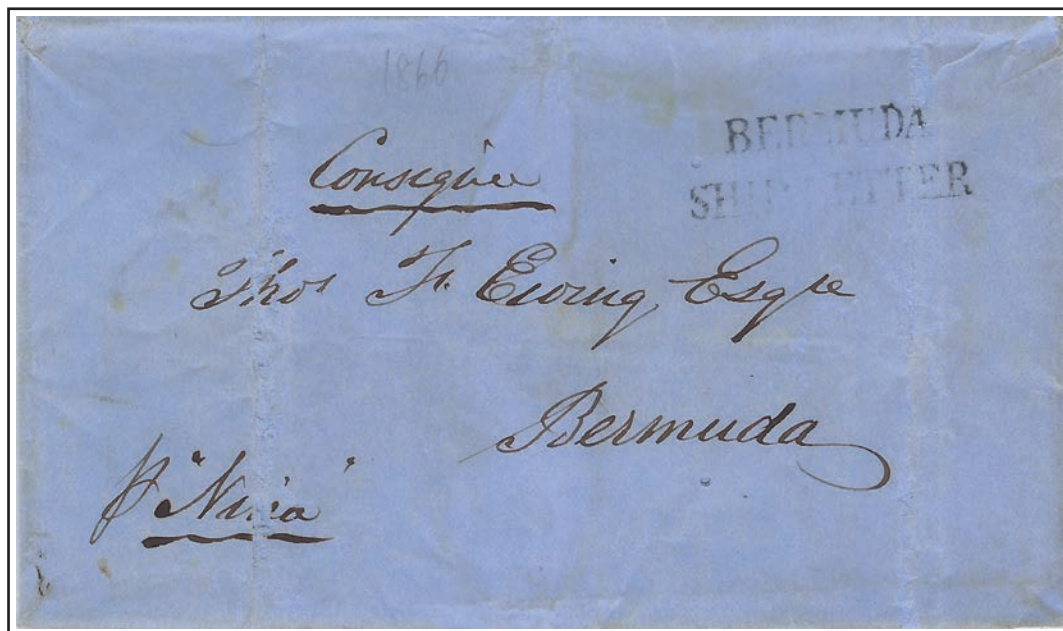 1866
BERMUDA
SHIP LETTER
Consignee
Thos F. Ewing Esqre
Bermuda
p "Nina"